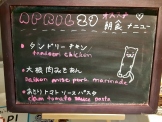 APRIL 29 オススメ
朝食メニュー
・タンドリーチキン
tandoori chicken
・大根肉みそあん
daikon miso pork marinade
・あさりトマトソースパスタ
clam tomato sauce pasta